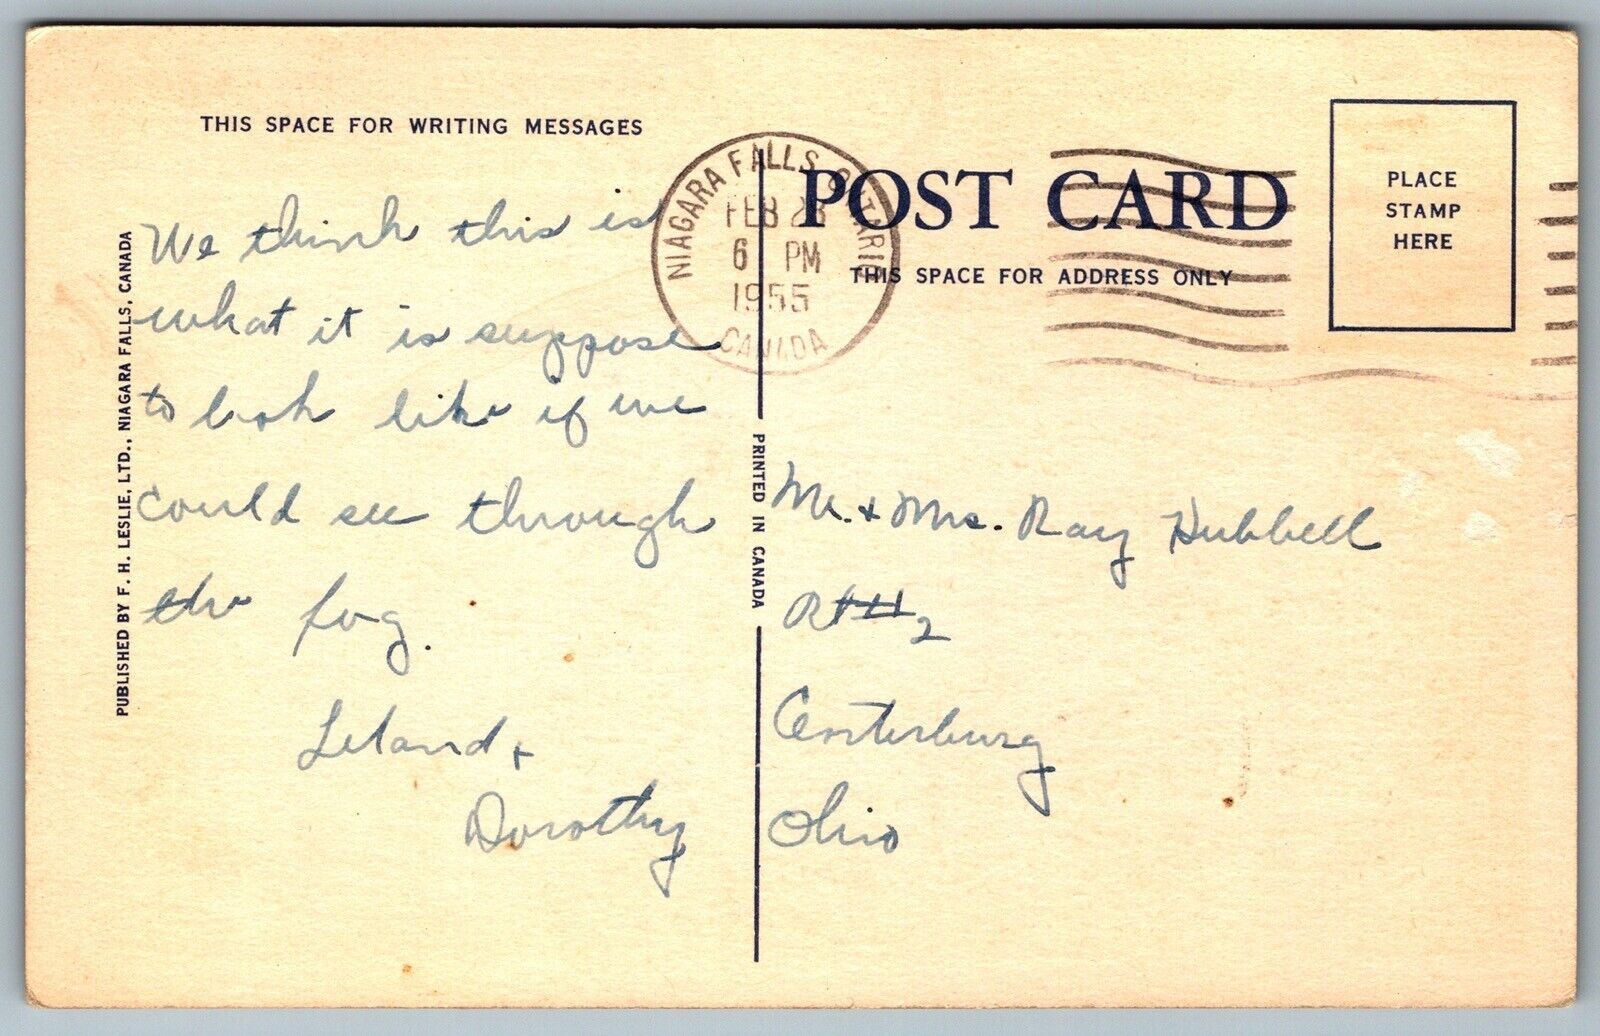 THIS SPACE FOR WRITING MESSAGES
We think this is
what it is suppose
to look like if we
could see through
the fog.
Leland +
Dorothy
PUBLISHED BY F. H. LESLIE, LTD., NIAGARA FALLS, CANADA
PRINTED IN CANADA
NIAGARA FALLS, ONTARIO
FEB 28
6 PM
1955
CANADA
POST CARD
THIS SPACE FOR ADDRESS ONLY
PLACE
STAMP
HERE
Mr. + Mrs. Ray Hubbell
Rt #2
Centerburg
Ohio